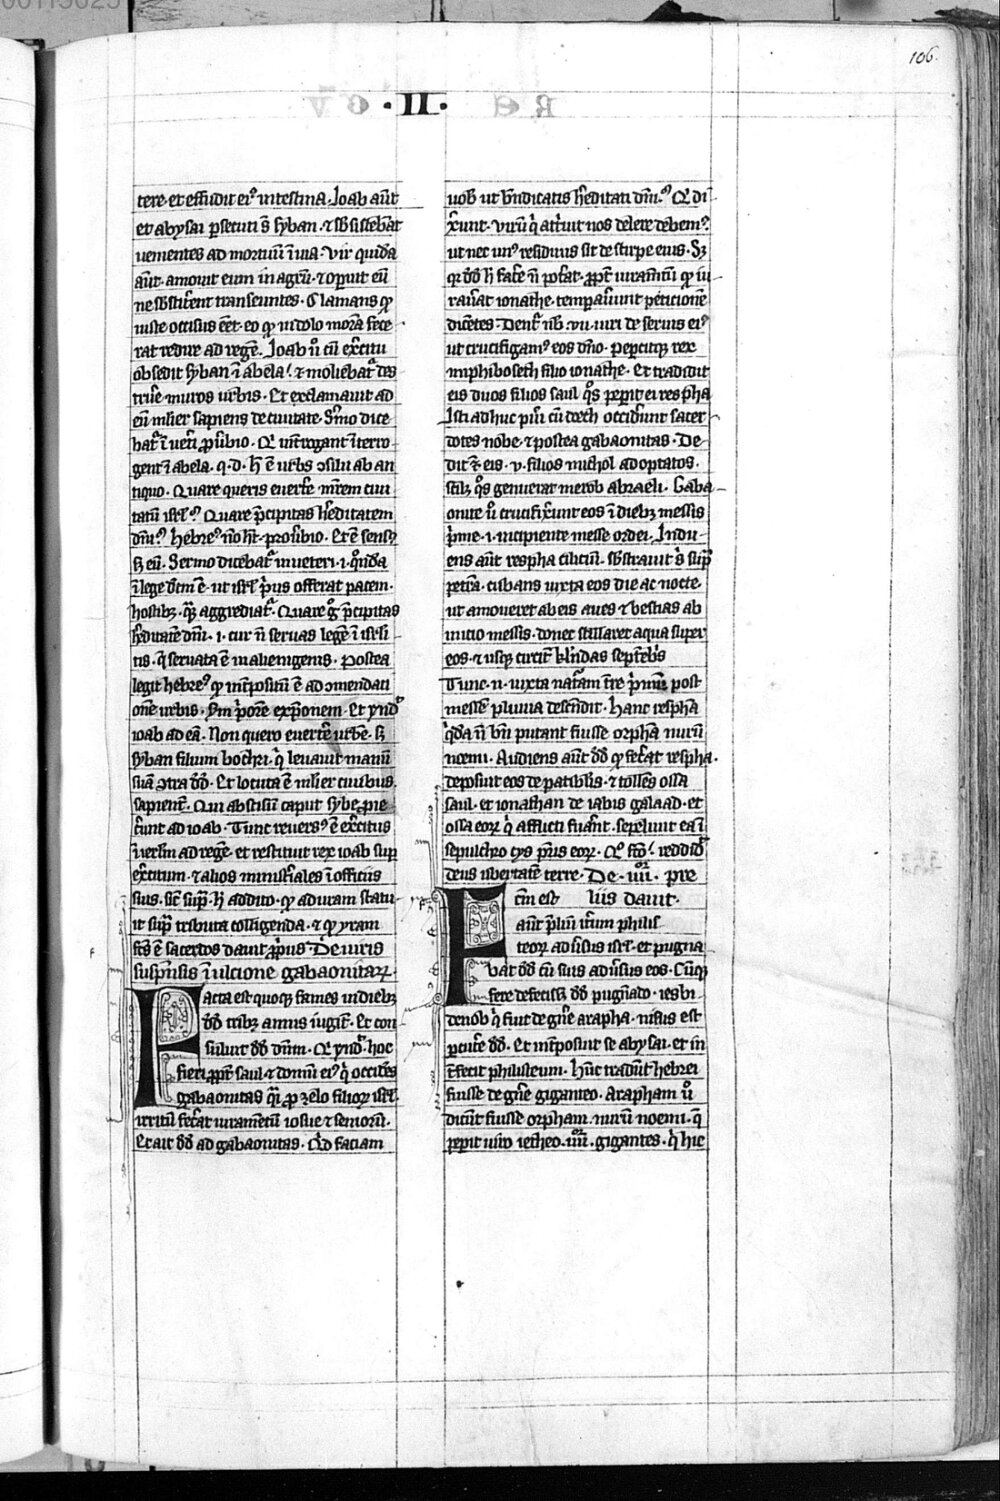 106
· II ·
tere · et effudit ei⁹ intestina · Joab aūt
et abysai ꝑsecuti s̄ syban · ⁊
uementes ad mortuū ī uia · Vir quidā
aūt · amouit eum in agrū · ⁊ opuit eū
ne transeuntes · Clamans qͥ
iuste occisus eēt · eo qͥ in dolo morā fece
rat redire ad regē · Joab ů cū exercitu
obsedit syban ī abela · ⁊ moliebat᷑ des
true muros urbis · Et exclamauit ad
eū mlier sapiens de ciuitate · S̄mo dice
bat᷑ ī uet̄i ꝓůbio · Qͥ īterrogant īterro
gent ī abela · q · d · h̄ ē urbs ↄsilii ab an
tiquo · Quare queris euerte m̄rem ciui
tatū isrl̄ · Quare p̄cipitas h̄editatem
dn̄i · hebre⁹ nō ht̄ · ꝓůbio · Et ē sens⁹
s̄ eū · Sermo dicebat᷑ in ueteri · i · qͦndā
ī lege dc̄m ē · ut isrl̄ pͥus offerat pacem ·
hostibꝫ · aggrediat᷑ · Quare gͦ p̄cipitas
h̄editatē dn̄i · i · cur n̄ seruas legē ī isrl̄i
tis · q̄ seruata ē in alienigenis · Postea
legit hebre⁹ qͥ int̄positū ē ad ↄmendati
onē urbis · pͥorē expōnem · Et r̄nd̄
ioab ad eā · Non quero euert̄e urbē · s̄
syban filium bochri · qͥ leuauit manū
suā ↄtra dd̄ · Et locuta ē mlier ciuibus
sapient̄ · Qui abscisū caput sybe ꝓie
c̄unt ad ioab · Tunc reuers⁹ ē exc̄itus
ī ierl̄m ad regē · et restituit rex ioab suꝑ
exc̄itum · ⁊ alios minist̄iales ī officiis
suis · sic̄ sup̄ · h̄ addito · qͥ aduram statu
it suꝑ tributa colligenda · ⁊ qͥ yram
fcs̄ ē sacerdos dauit ꝓpͥus · De uiris
suspēnsis ī ulcione gabaonitaꝝ ·
Facta est quoqꝫ fames in diebꝫ
dd̄ tribꝫ annis iugit̄ · Et con
suluit dd̄ dn̄m · Qͥ r̄nd̄ · hoc
fieri ꝓpt̄ saul ⁊ domū ei⁹ qͥ occid̄es
gabaonitas qͣi ꝓ zelo filioꝝ isrl̄
irritū fec̄at iuramētū iosue ⁊ senioꝝ ·
Et ait dd̄ ad gabaonitas · Qͥd faciam
uob̄ ut bn̄dicatis h̄editati dn̄i · Qͥ di
x̄unt · Virū qͥ att̄uit nos delere debem⁹
ut nec un⁹ residuus sit de stirpe eius · Sꝫ
qꝛ dd̄ h̄ face n̄ pot̄at · ꝓpt̄ iuramētū qͥ iu
rau̅at ionathe · tempau̅unt peticionē
dicētes · Dent᷑ nb̄ · vii · uiri de seruis ei⁹
ut crucifigam⁹ eos dn̄o · peꝑcitqꝫ rex
miphiboseth filio ionathe · Et tradidit
eis duos filios saul qͦs peperit ei respha
Isti adhuc pu̅i cū doech occid̄unt sacer
dotes nobe · ⁊ postea gabaonitas · De
dit ⁊ eis · v · filios michol adoptatos ·
scilꝫ qͦs genuerat merob abraeli · Gaba
onite ů crucifix̄unt eos ī diebꝫ messis
pͥme · i · incipiente messe ordei · Indu
ens aūt respha ciliciū · sb̄strauit s̄ suꝑ
petrā · cubans iuxta eos die ac nocte
ut amoueret ab eis aues ⁊ bestias ab
inicio messis · donec stillaret aqua super
eos · ⁊ usqꝫ circit̄ kl̄endas septēbͥs
Tunc · n · iuxta nat̄am t̄re pͥmū post
messē pluuia descēdit · Hanc resphā
qͥdā n̄ bn̄ putant fuisse orphā nurū
noemi · Audiens aūt dd̄ qͥ fec̄at respha ·
deposuit eos de patibl̄is · ⁊ tollēs ossa
saul · et ionathan de iabis galaad · et
ossa eoꝝ qͥ afflicti fu̅ant · sepeliuit ea ī
sepulchro cys pr̄is eoꝝ · Qͦ fc̄o · reddid̄
deus ubertatē terre · De · iiii · pre
liis dauit ·
Fctm est
aūt p̄liū it̄um philis
teoꝝ ad ůsus isrl̄ · et pugna
bat dd̄ cū suis adůsus eos · Cūqꝫ
fere defecisꝫ dd̄ pugnādo · iesbi
denob qͥ fuit de gn̄e arapha · nisus est
ꝑcut̄e dd̄ · Et int̄posuit se abysai · et in
t̄fecit philisteum · Hūc tradūt hebrei
fuisse de gn̄e giganteo · Arapham ů
dicūt fuisse orpham · nurū noemi · q̄
peperit uiro ietheo · iiii · gigantes · qͥ hic